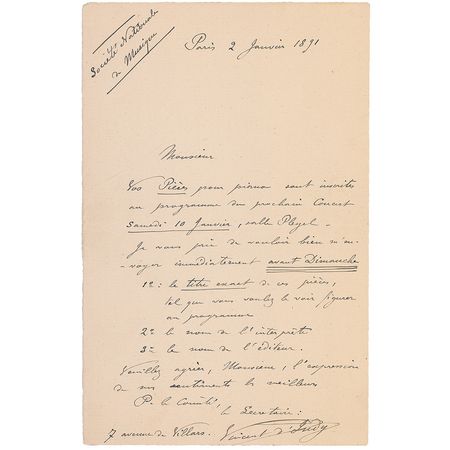 Société Nationale
de Musique
Paris 2 Janvier 1891
Monsieur
Vos Pièces pour piano sont inscrites
au programme du prochain Concert
Samedi 10 Janvier, salle Pleyel –
Je vous prie de vouloir bien m'en-
-voyer immédiatement avant Dimanche
1º: le titre exact de ces pièces,
tel que vous voulez le voir figurer
au programme
2º le nom de l'interprète
3º le nom de l'éditeur.
Veuillez agréer, Monsieur, l'expression
de mes sentiments les meilleurs
Pr le Comité,
le Secrétaire:
7 avenue de Villars. Vincent d'Indy